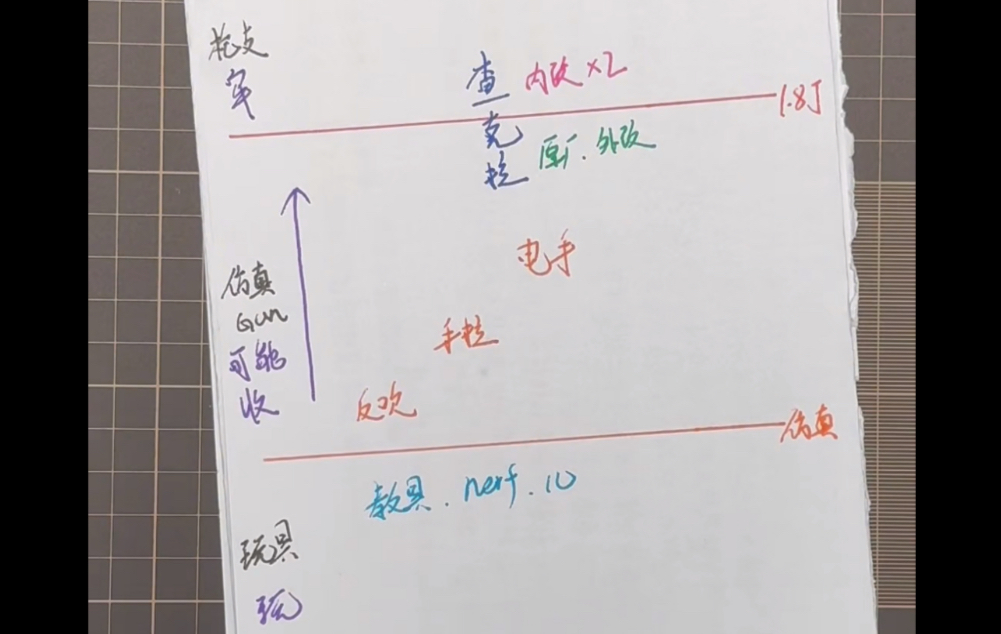 枪支
牢
查 内改 x2
1.8J
克 原厂. 外改
拉
电手
仿真
Gun
手拉
可能
收
反吹
仿真
教具. nerf.
玩具